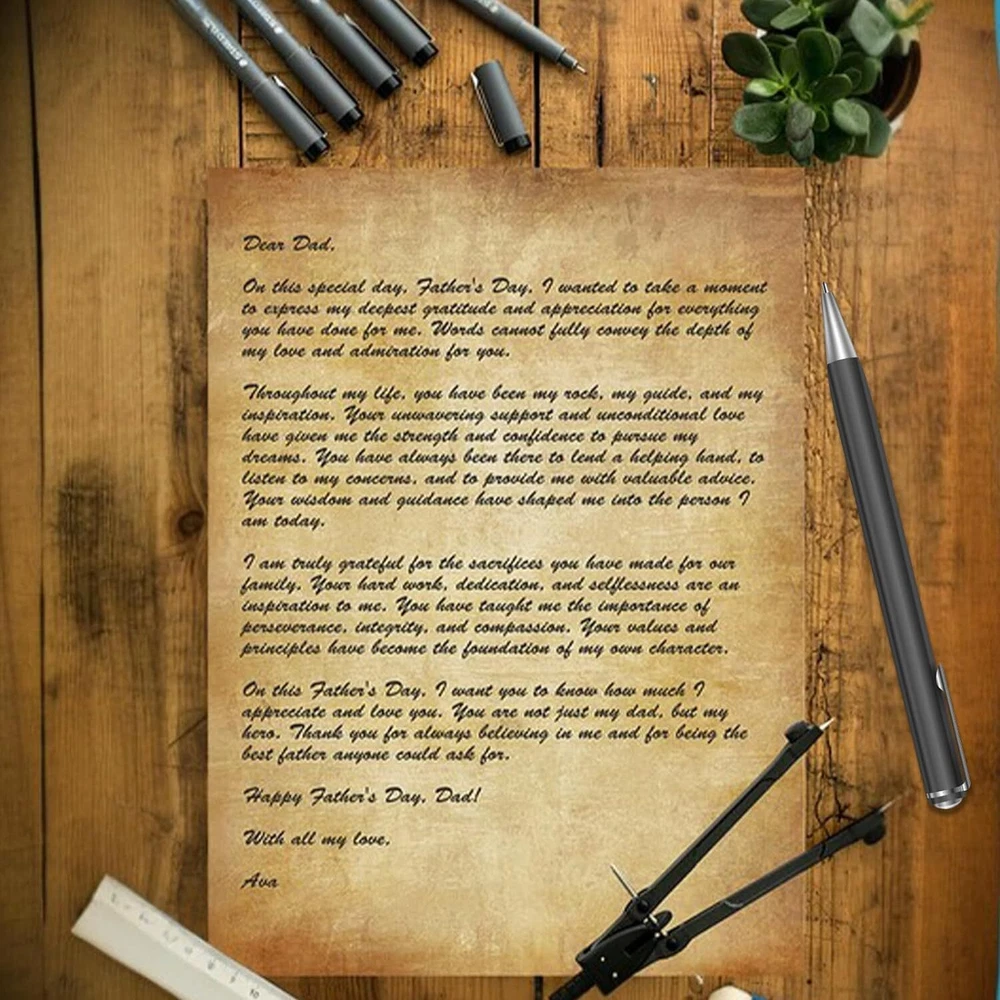 STAEDTLER
Dear Dad,
On this special day, Father's Day, I wanted to take a moment
to express my deepest gratitude and appreciation for everything
you have done for me. Words cannot fully convey the depth of
my love and admiration for you.
Throughout my life, you have been my rock, my guide, and my
inspiration. Your unwavering support and unconditional love
have given me the strength and confidence to pursue my
dreams. You have always been there to lend a helping hand, to
listen to my concerns, and to provide me with valuable advice.
Your wisdom and guidance have shaped me into the person I
am today.
I am truly grateful for the sacrifices you have made for our
family. Your hard work, dedication, and selflessness are an
inspiration to me. You have taught me the importance of
perseverance, integrity, and compassion. Your values and
principles have become the foundation of my own character.
On this Father's Day, I want you to know how much I
appreciate and love you. You are not just my dad, but my
hero. Thank you for always believing in me and for being the
best father anyone could ask for.
Happy Father's Day, Dad!
With all my love,
Ava
8 9 10